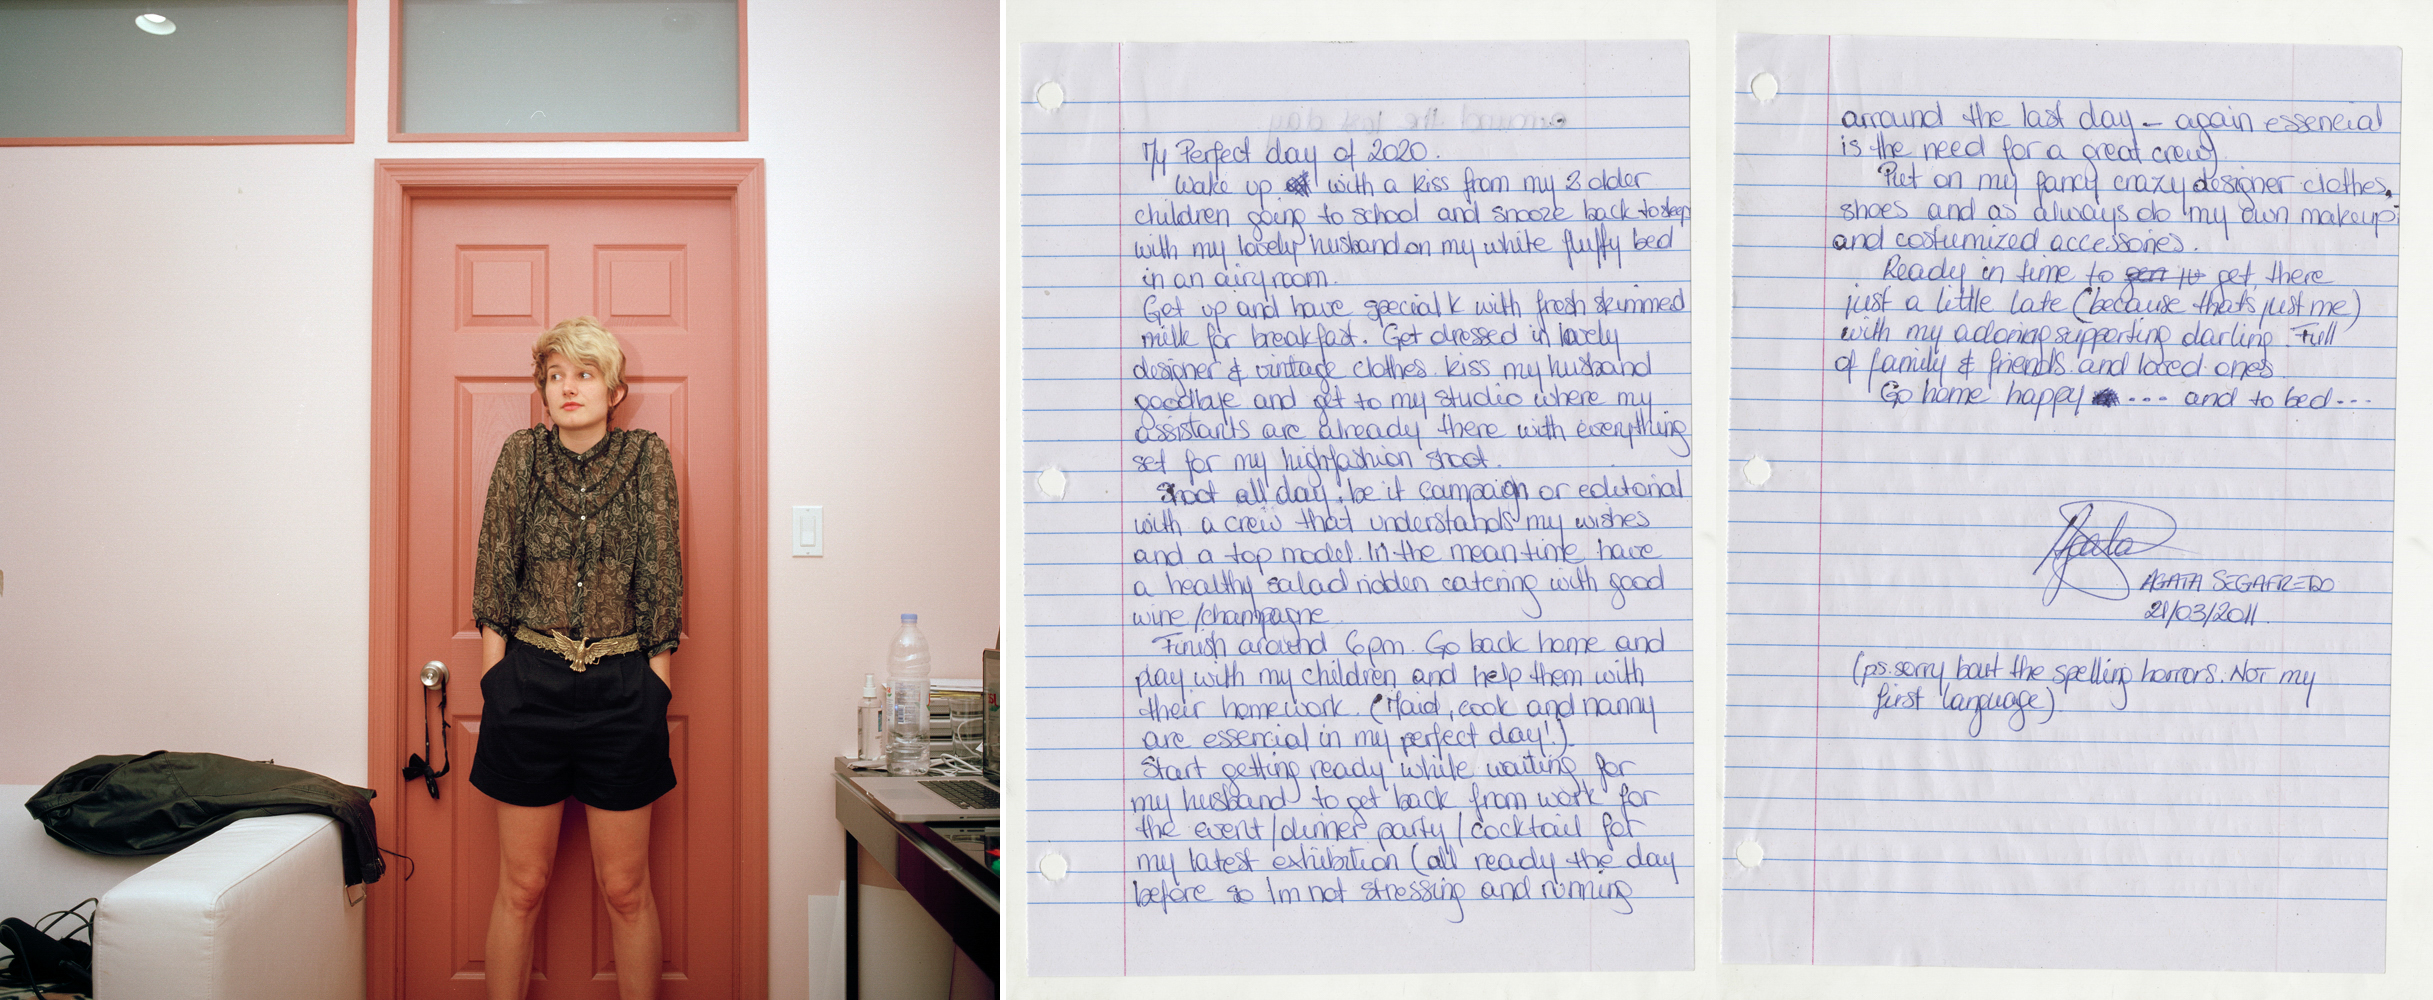 My Perfect day of 2020.
Wake up with a kiss from my 3 older
children going to school and snooze back to sleep
with my lovely husband on my white fluffy bed
in an airy room.
Get up and have special k with fresh skimmed
milk for breakfast. Get dressed in lovely
designer & vintage clothes. kiss my husband
goodbye and get to my studio where my
assistants are already there with everything
set for my highfashion shoot.
Shoot all day, be it campaign or editorial
with a crew that understands my wishes
and a top model. In the mean time have
a healthy salad ridden catering with good
wine/champagne
Finish around 6pm. Go back home and
play with my children and help them with
their homework. (Maid, cook and nanny
are essencial in my perfect day!)
Start getting ready while waiting for
my husband to get back from work for
the event/dinner party/cocktail for
my latest exhibition (all ready the day
before so Im not stressing and running
arround the last day - again essencial
is the need for a great crew)
Put on my fancy crazy designer clothes,
shoes and as always do my own makeup
and costumized accessories.
Ready in time to get there
just a little late (because thats just me)
with my adoring supporting darling. Full
of family & friends and loved ones.
Go home happy --- and to bed---
Agata
AGATA SEGAFREDO
21/03/2011.
(ps. sorry bout the spelling horrors. Not my
first language)